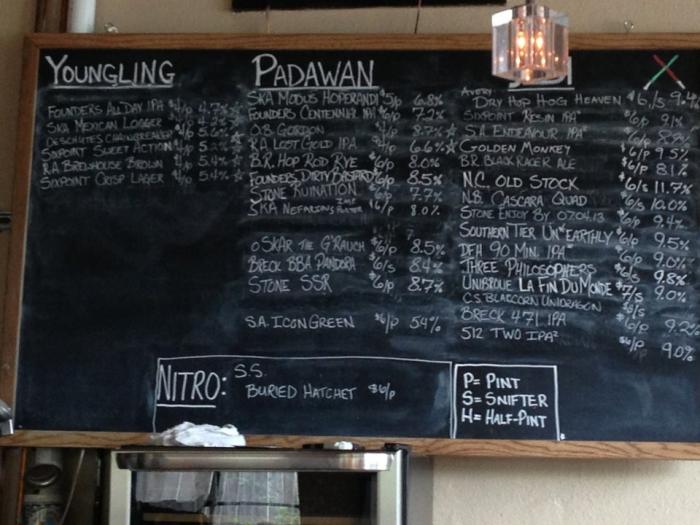 YOUNGLING
FOUNDERS ALL DAY IPA $4/p 4.7%
SKA MEXICAN LOGGER
DESCHUTES CHAINBREAKER 5.6%
SIXPOINT SWEET ACTION 5.2%
R.A. BRICKHOUSE BROWN 5.4%
SIXPOINT CRISP LAGER 5.4%
PADAWAN
SKA MODUS HOPERANDI $5/p 6.8%
FOUNDERS CENTENNIAL IPA 7.2%
O.B. GORDON 8.7%
R.A. LOST GOLD IPA 6.6%
B.R. HOP ROD RYE 8.0%
FOUNDERS DIRTY BASTARD 8.5%
STONE RUINATION 7.7%
SKA NEFARIOUS 8.0%
OSKAR THE G'RAUCH $6/p 8.5%
BRECK BBA PANDORA $6/s 8.4%
STONE SSR $6/p 8.7%
S.A. ICON GREEN $6/p 5.4%
AVERY
DRY HOP HOG HEAVEN $6/s 9.4
SIXPOINT RESIN IPA² $6/p 9.1%
S.A. ENDEAVOUR IPA²
GOLDEN MONKEY $6/p 9.5%
B.R. BLACK RACER ALE $6/p 8.1%
N.C. OLD STOCK $6/s 11.7%
N.B. CASCARA QUAD $6/s 10.0%
STONE ENJOY BY 07.04.13 9.4%
SOUTHERN TIER UN*EARTHLY $6/p 9.5%
DFH 90 MIN. IPA $6/p 9.0%
THREE PHILOSOPHERS $6/s 9.8%
UNIBROUE LA FIN DU MONDE $7/s 9.0%
C.S. BLACCORN UNIDRAGON
BRECK 471 IPA $6/p 9.2
512 TWO IPA² 9.0%
NITRO: S.S.
BURIED HATCHET $6/p
P= PINT
S= SNIFTER
H= HALF-PINT